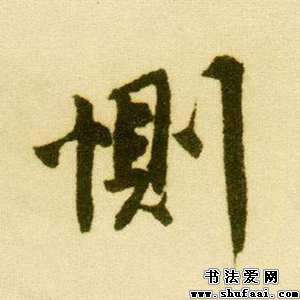 惻
书法爱网
www.shufaai.com